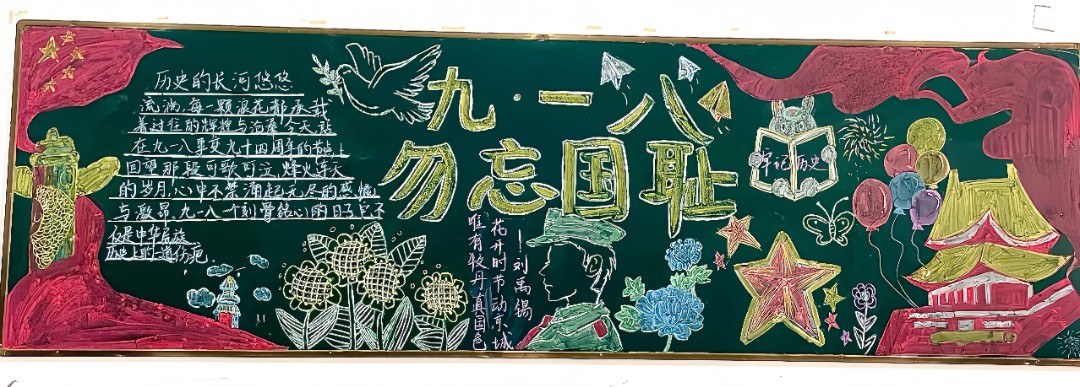 历史的长河悠悠
流淌,每一颗浪花都承载
着过往的辉煌与沧桑,今天,站
在九一八事变九十四周年的节点上
回望那段可歌可泣、烽火连天
的岁月,心中不禁涌起无尽的感慨
与激昂.九一八一个刻骨铭心的日子,它不
仅是中华民族
历史上的一道伤疤.
九·一八
勿忘国耻
牢记历史
唯有牡丹真国色
花开时节动京城
——刘禹锡